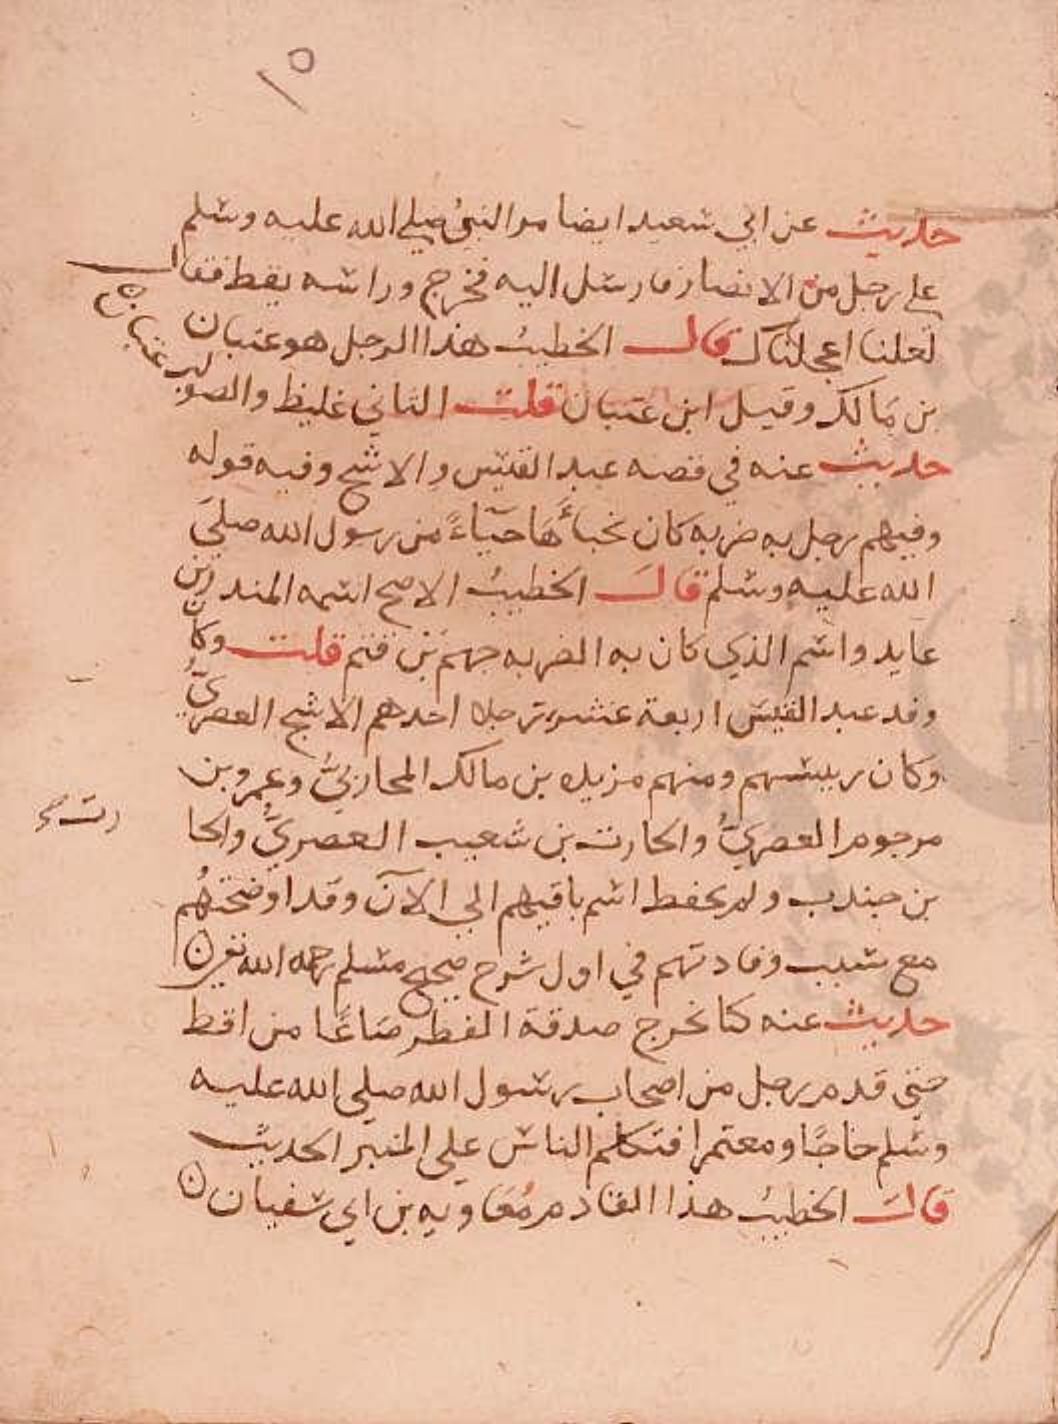 ١٥
حديث عن ابي سعيد ايضا مر النبي صلى الله عليه وسلم
على رجل من الانصار فارسل اليه فخرج وراسه يقطر فقال
لعلنا اعجلناك قال الخطيب هذا الرجل هو عتبان
بن مالك وقيل ابن عتبان قلت الثاني غليط والصواب عتبان
حديث عنه في قصه عبد القيس والاشج وفيه قوله
وفيهم رجل به ضربة كان يخبأها حياءً من رسول الله صلى
الله عليه وسلم قال الخطيب الاصح اسمه المنذر بن
عايد واسم الذي كان به الضربه جهم بن قثم قلت وكان
وفد عبد القيس اربعة عشر رجلا احدهم الاشج العصري
وكان رييسهم ومنهم مزيده بن مالك المحاربي وعمرو بن
مرجوم العصري والحارث بن شعيب العصري والحا
رث
بن جندب ولم يحفظ اسم باقيهم الي الآن وقد اوضحتهم
مع سبب وفادتهم في اول شرح صحيح مسلم رحمه الله
حديث عنه كنا نخرج صدقة الفطر صاعًا من اقط
حتى قدم رجل من اصحاب رسول الله صلى الله عليه
وسلم حاجًا ومعتمرا فتكلم الناس على المنبر الحديث
قال الخطيب هذا القادم معاويه بن ابي سفيان